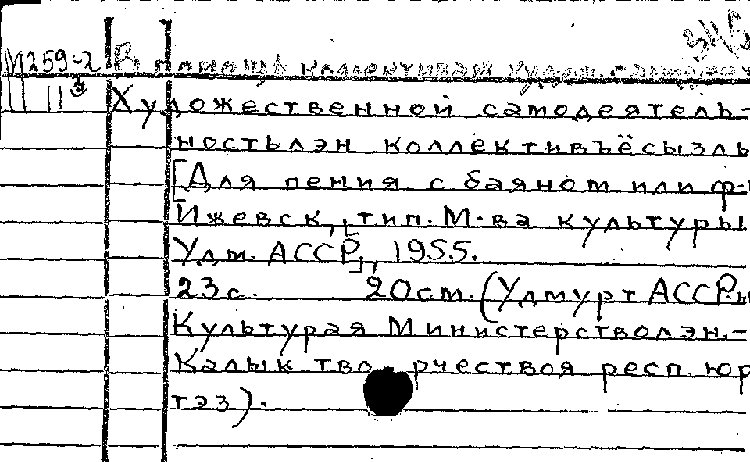 345
М259-2 В помощь коллективам худож. самодеят
Художественной самодеятель-
ностьлэн коллективъёсызлы
[Для пения с баяном или ф-
Ижевск, [тип. М-ва культуры
Удм. АССР], 1955.
23с. 20см. (Удмурт АССР-ы
Культурая Министерстволэн.-
Калык творчествоя респ. юр
тэз).